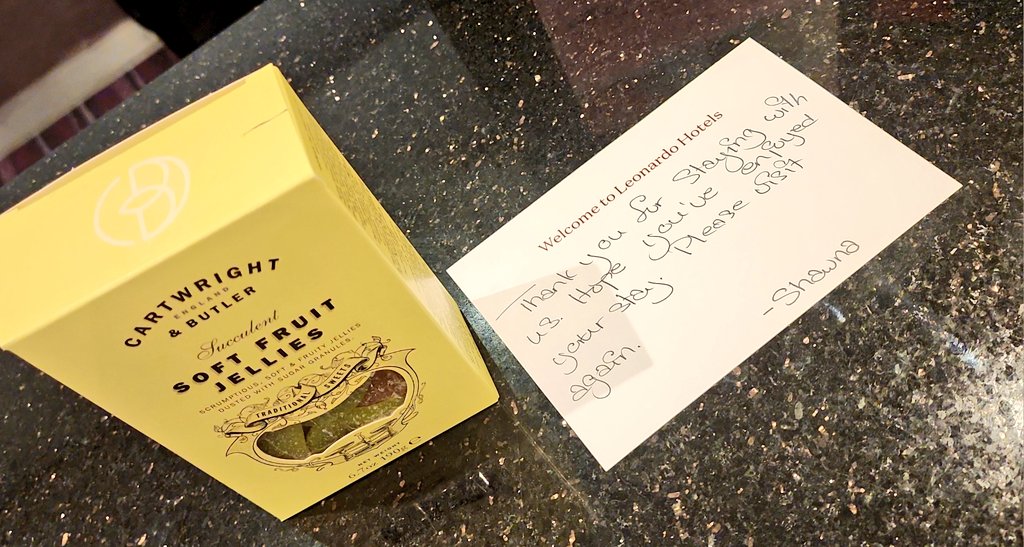 CARTWRIGHT
ENGLAND
& BUTLER
Succulent
SOFT FRUIT
JELLIES
SCRUMPTIOUS, SOFT & FRUITY JELLIES
DUSTED WITH SUGAR GRANULES.
TRADITIONAL SWEETS
NET WEIGHT
6.7oz 190g e
Welcome to Leonardo Hotels
Thank you for staying with
us. Hope you've enjoyed
your stay. Please visit
again.
- Shawna